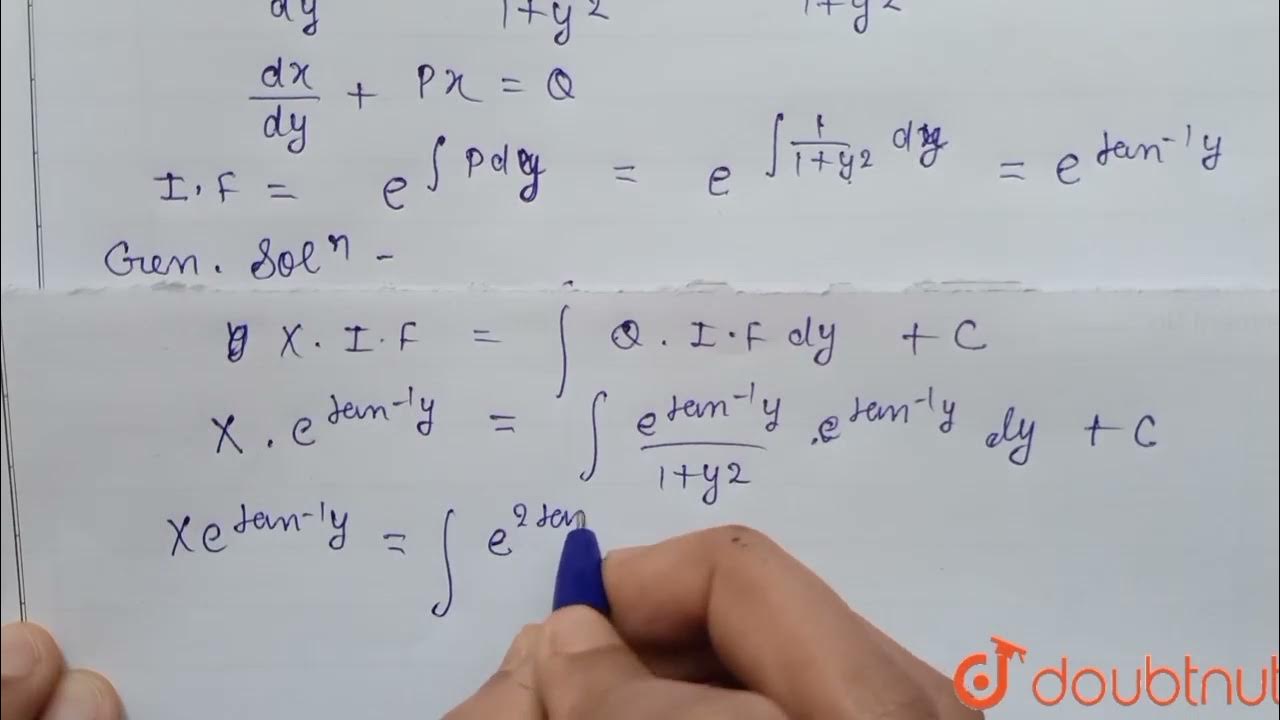 dy 1+y2 1+y2
dx/dy + Px = Q
I.F = e^∫Pdy = e^∫1/1+y2 dy = e^tan-1y
Gen. Soln -
X. I.F = ∫ Q. I.F dy + C
X . e^tan-1y = ∫ e^tan-1y/1+y2 .e^tan-1y dy + C
Xe^tan-1y = ∫ e^2tan
doubtnut